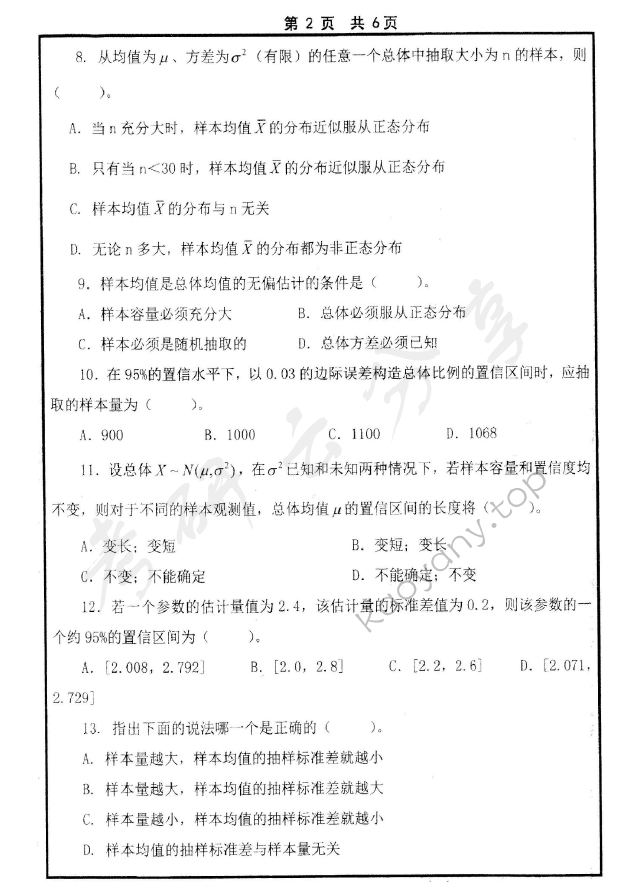 第 2 页 共 6 页
8. 从均值为μ、方差为σ²（有限）的任意一个总体中抽取大小为 n 的样本，则
（ ）。
A. 当 n 充分大时，样本均值 X̄ 的分布近似服从正态分布
B. 只有当 n＜30 时，样本均值 X̄ 的分布近似服从正态分布
C. 样本均值 X̄ 的分布与 n 无关
D. 无论 n 多大，样本均值 X̄ 的分布都为非正态分布
9. 样本均值是总体均值的无偏估计的条件是（ ）。
A. 样本容量必须充分大 B. 总体必须服从正态分布
C. 样本必须是随机抽取的 D. 总体方差必须已知
10. 在 95%的置信水平下，以 0.03 的边际误差构造总体比例的置信区间时，应抽
取的样本量为（ ）。
A. 900 B. 1000 C. 1100 D. 1068
11. 设总体 X ~ N(μ,σ²)，在σ²已知和未知两种情况下，若样本容量和置信度均
不变，则对于不同的样本观测值，总体均值μ的置信区间的长度将（ ）。
A. 变长；变短 B. 变短；变长
C. 不变；不能确定 D. 不能确定；不变
12. 若一个参数的估计量值为 2.4，该估计量的标准差值为 0.2，则该参数的一
个约 95%的置信区间为（ ）。
A. [2.008, 2.792] B. [2.0, 2.8] C. [2.2, 2.6] D. [2.071,
2.729]
13. 指出下面的说法哪一个是正确的（ ）。
A. 样本量越大，样本均值的抽样标准差就越小
B. 样本量越大，样本均值的抽样标准差就越大
C. 样本量越小，样本均值的抽样标准差就越小
D. 样本均值的抽样标准差与样本量无关
考研云分享
kaoyany.top